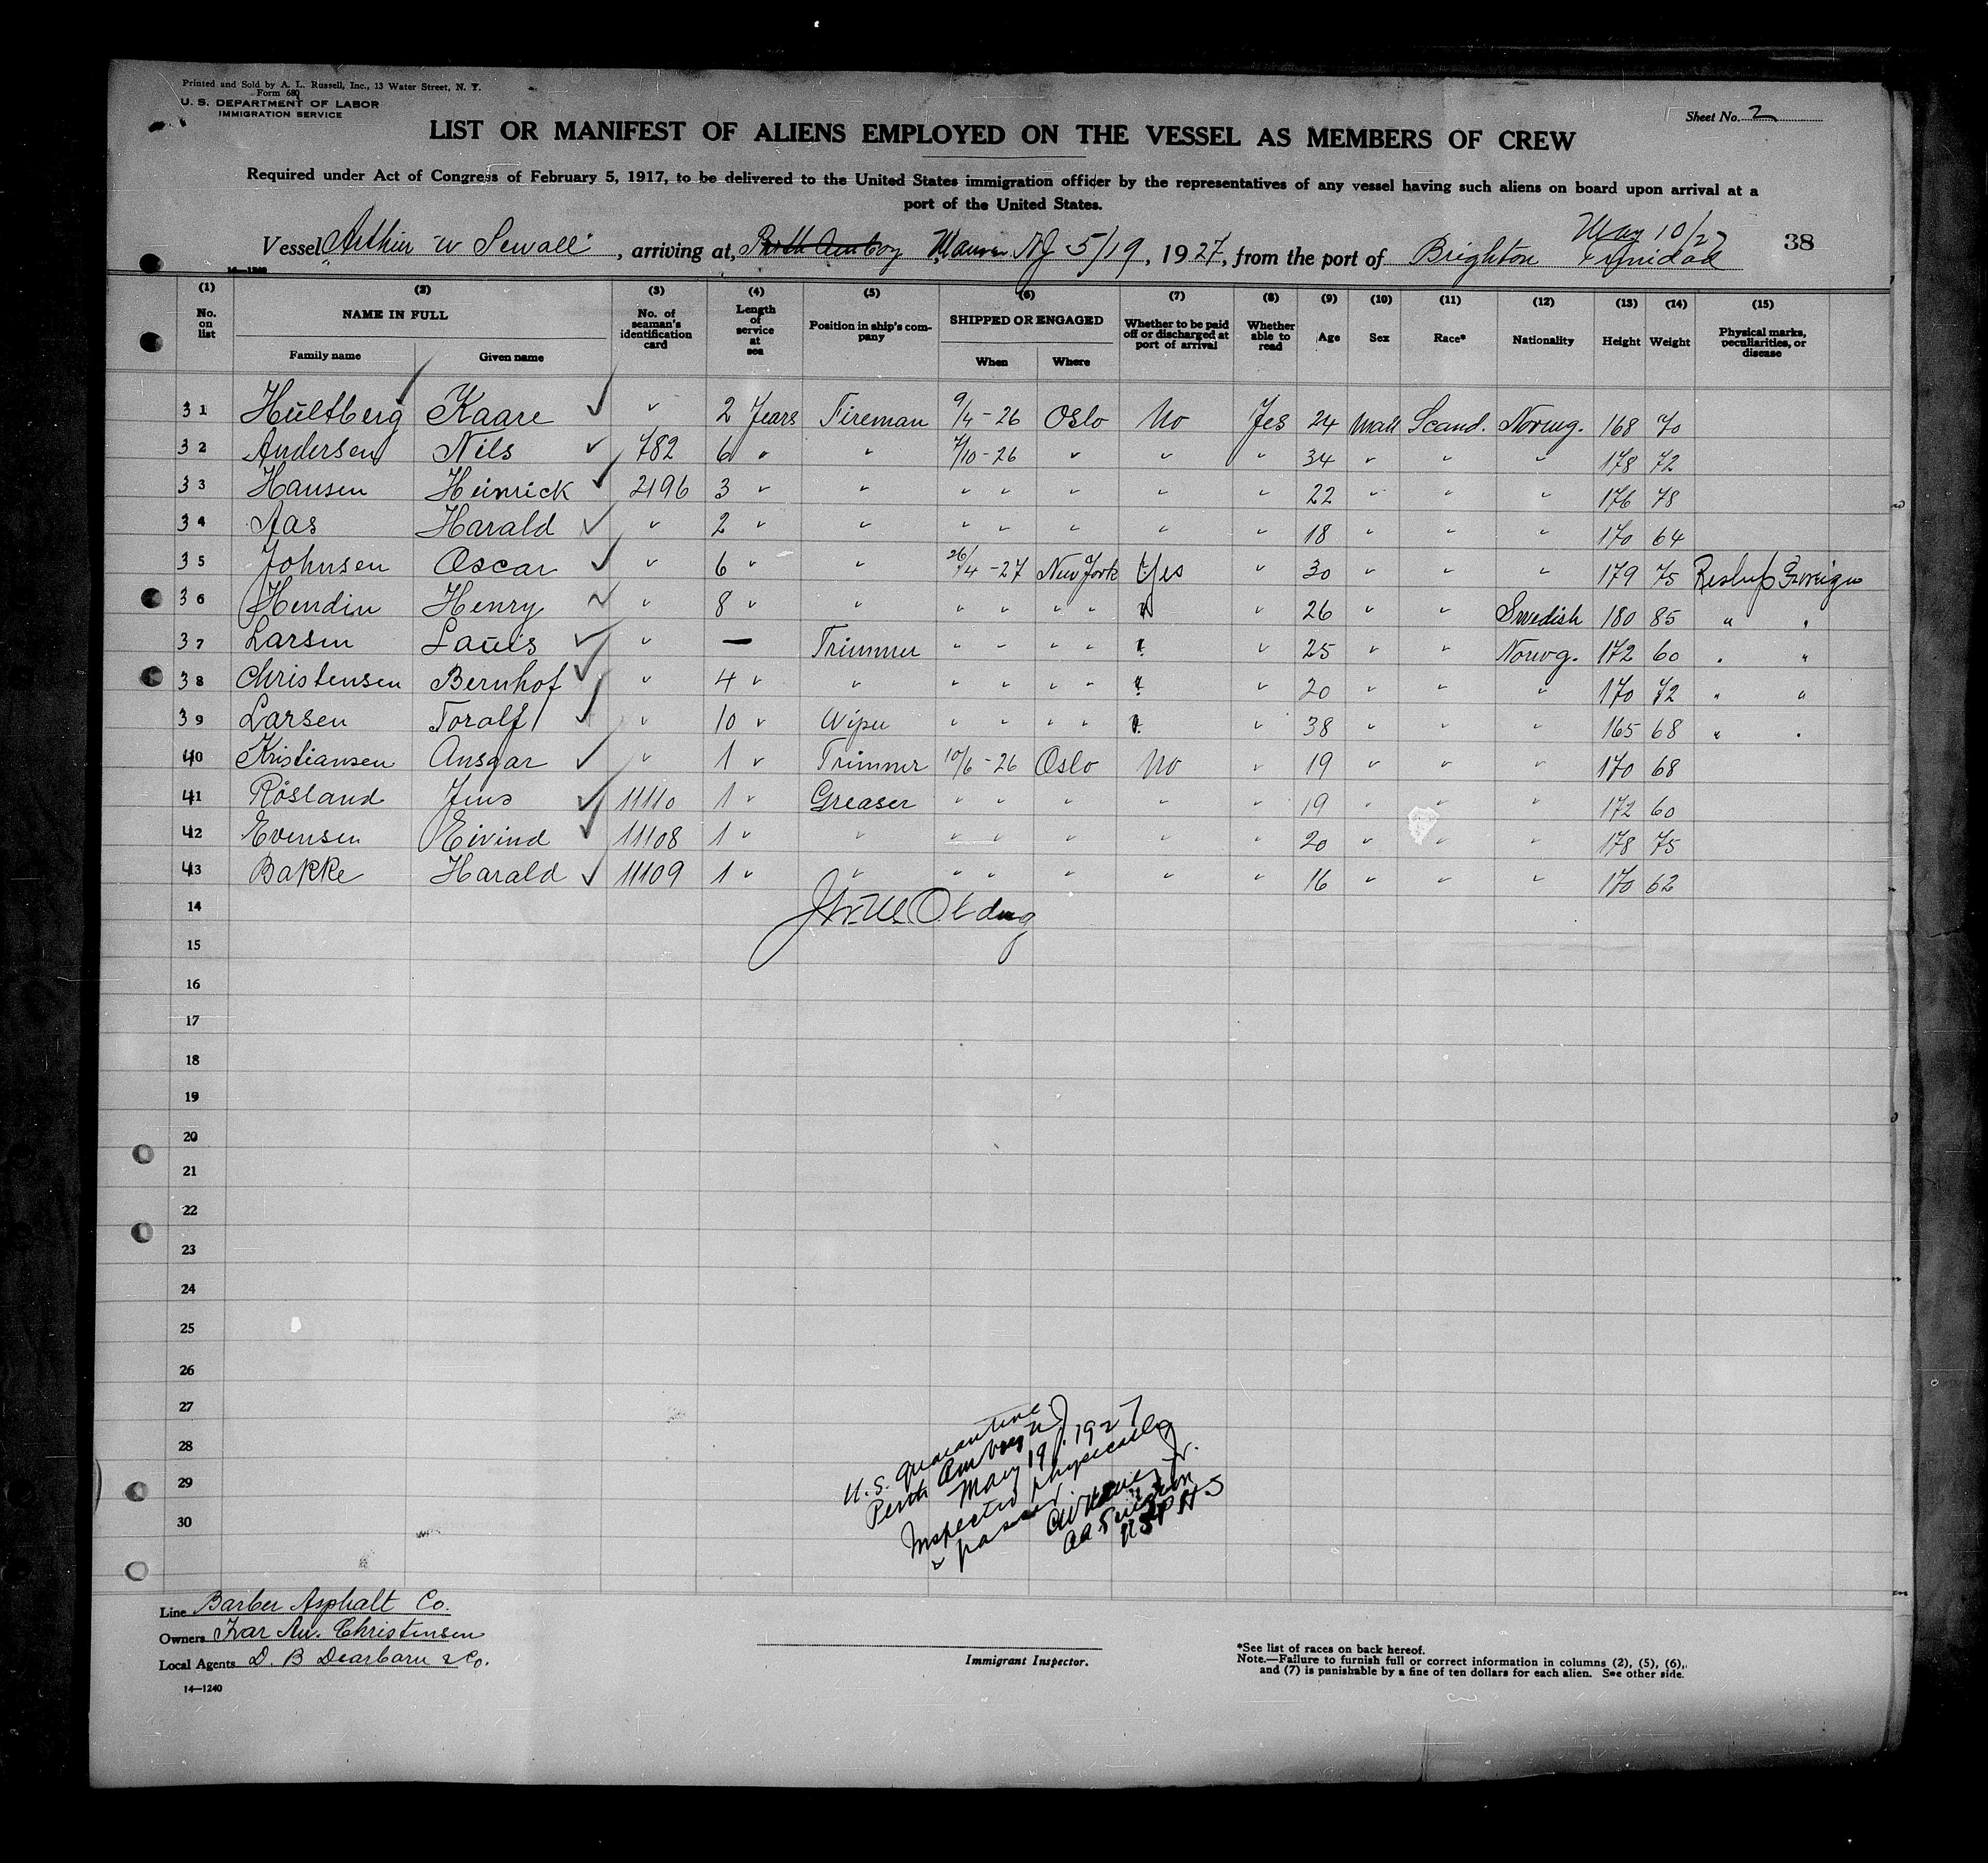 Printed and Sold by A. L. Russell, Inc., 13 Water Street, N. Y.
Form 680
U. S. DEPARTMENT OF LABOR
IMMIGRATION SERVICE
Sheet No. 2
LIST OR MANIFEST OF ALIENS EMPLOYED ON THE VESSEL AS MEMBERS OF CREW
Required under Act of Congress of February 5, 1917, to be delivered to the United States immigration officer by the representatives of any vessel having such aliens on board upon arrival at a
port of the United States.
May 10/27
38
Vessel Arthur W Sewall, arriving at, Perth Amboy NJ 5/19, 1927, from the port of Brighton Trinidad
14—1240
(1) (2) (3) (4) (5) (6) (7) (8) (9) (10) (11) (12) (13) (14) (15)
No. on list NAME IN FULL Family name Given name No. of seaman's identification card Length of service at sea Position in ship's company SHIPPED OR ENGAGED When Where Whether to be paid off or discharged at port of arrival Whether able to read Age Sex Race* Nationality Height Weight Physical marks, peculiarities, or disease
31 Hultberg Kaare ✓ " 2 Years Fireman 9/4-26 Oslo No Yes 24 Male Scand. Norwg. 168 70
32 Andersen Nils ✓ 782 6 " " 7/10-26 " " " 34 " " " 178 72
33 Hansen Heinrick ✓ 2196 3 " " " " " " " 22 " " " 176 78
34 Aas Harald ✓ " 2 " " " " " " " 18 " " " 170 64
35 Johnsen Oscar ✓ " 6 " " 26/4-27 New York Yes " 30 " " " 179 75 Reship Foreign
36 Hendin Henry " 8 " " " " " " " " 26 " " Swedish 180 85 " "
37 Larsen Lauis ✓ " — Trimmer " " " " " " 25 " " Norwg. 172 60 " "
38 Christensen Bernhof ✓ " 4 " " " " " " " " 20 " " " 170 72 " "
39 Larsen Toralf ✓ " 10 " Wiper " " " " " " 38 " " " 165 68 " "
40 Kristiansen Ansgar ✓ " 1 " Trimmer 10/6-26 Oslo No " 19 " " " 170 68
41 Røsland Jens ✓ 11110 1 " Greaser " " " " " 19 " " " 172 60
42 Evensen Eivind ✓ 11108 1 " " " " " " " 20 " " " 178 75
43 Bakke Harald ✓ 11109 1 " " " " " " " 16 " " " 170 62
14
15
16
17
18
19
20
21
22
23
24
25
26
27
28
29
30
U.S. Quarantine
Perth Amboy NJ
May 19, 1927
Inspected physically
& passed
USPHS
Line Barber Asphalt Co.
Owners Ivar An. Christensen
Local Agents D. B Dearborn & Co.
14—1240
Immigrant Inspector.
*See list of races on back hereof.
Note.—Failure to furnish full or correct information in columns (2), (5), (6),
and (7) is punishable by a fine of ten dollars for each alien. See other side.